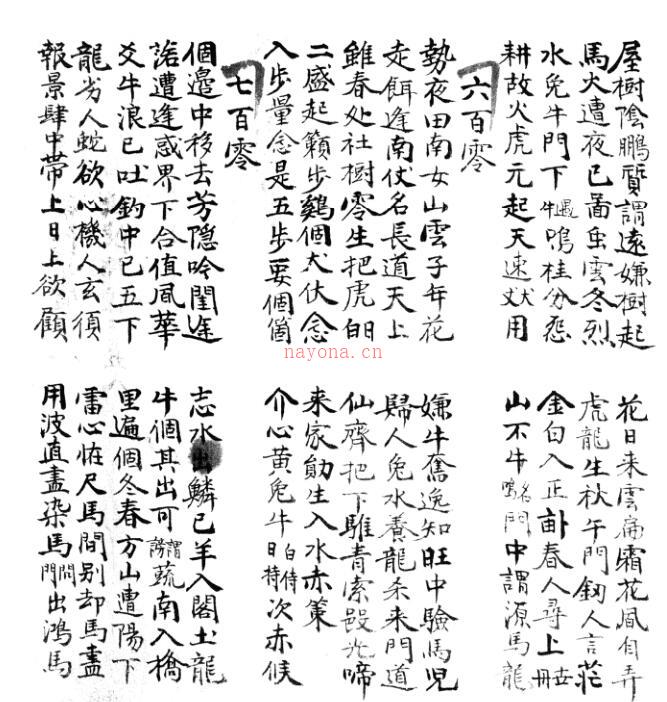 屋樹陰鵬質謂遠嫌樹起
馬火遭夜已啚虫雲冬烈
水兔牛門下蝿遇鳴桂分怨
耕故火虎元起天速犬伏用
六百零
勢夜田南女山雲子年花
走餌逢南仗名長道天上
雖春处社樹零生把虎
二盛起籟步鷄個犬伏念
入步量念是五步要個箇
七百零
個邊中移去芳隐吟閨逢
詒遭逢惑界下合值風華
爻牛浪已吐釣中已五下
龍劣人蛇欲心機人玄須
報景肆中帶上日上欲顧
花日来雲扇霜花風自弄
虎龍生秋午門釼人言茫
金白入正春人尋上冊
山不牛名鳴門中謂源馬龍
嫌牛奮逸知旺中驗馬児
婦人兔水養龍杀来門道
仙齊把下騅青索光啼
来家生入水赤策
介心黄兔牛日白持侍次赤候
志水出鱗已羊入閣土龍
牛個其出可謗謂蔬南入橋
里遍個冬春方山遭陽下
雷心怪尺馬間别却馬盡
用波直盡染馬門問出鴻馬
nayona.cn